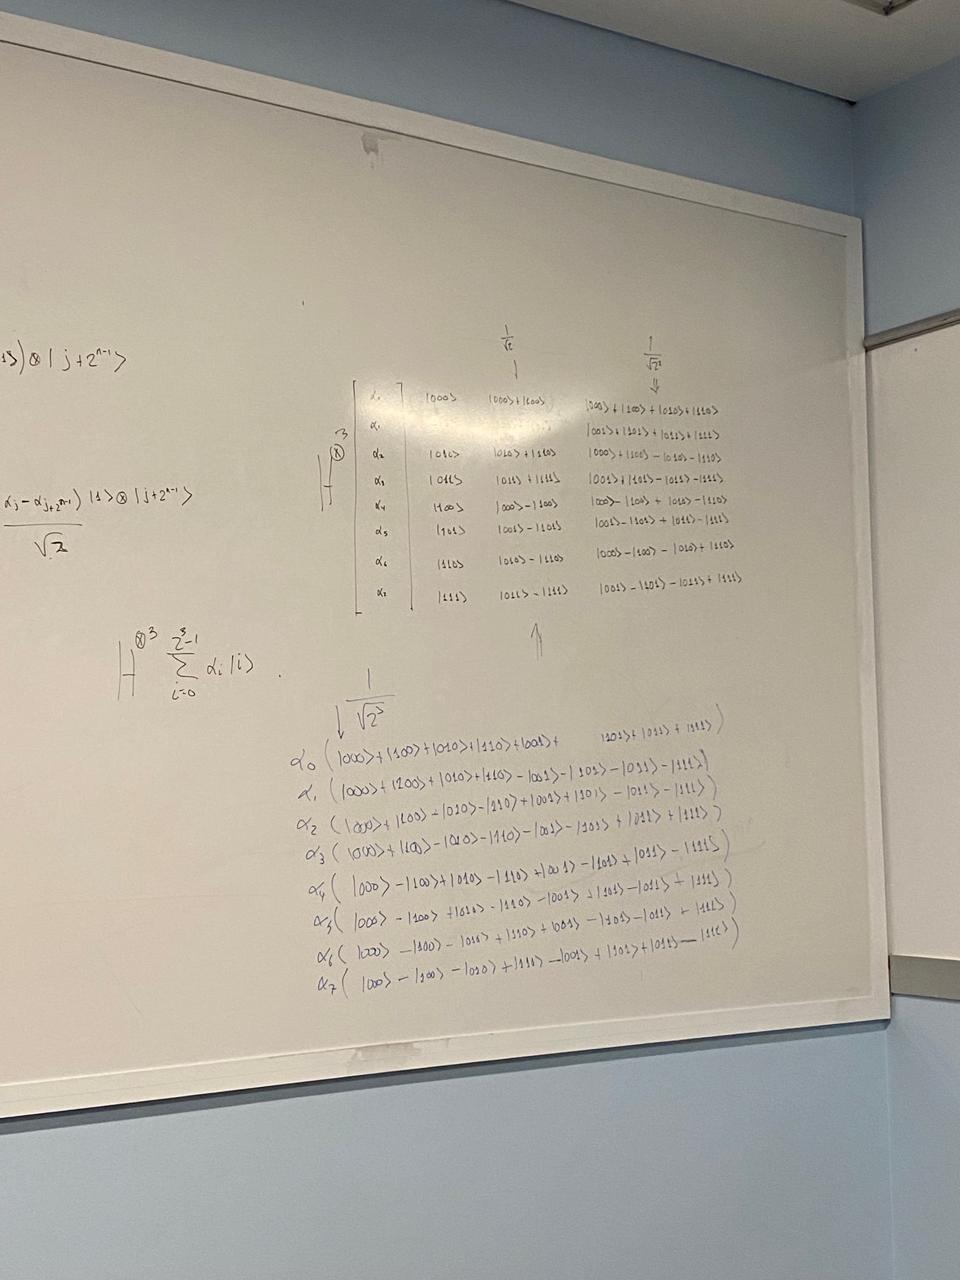 1⟩)⊗| j+2ⁿ⁻¹⟩
αj − αj+2ⁿ⁻¹) |1⟩⊗|j+2ⁿ⁻¹⟩
√2
H⊗3 2³−1 Σ i=0 αi|i⟩ .
1/√2 1/√2²
↓ ⇓
H⊗3
α₀ |000⟩ |000⟩+|100⟩ |000⟩+|100⟩+|010⟩+|110⟩
α₁ |001⟩+|101⟩+|011⟩+|111⟩
α₂ |010⟩ |010⟩+|110⟩ |000⟩+|100⟩−|010⟩−|110⟩
α₃ |011⟩ |011⟩+|111⟩ |001⟩+|101⟩−|011⟩−|111⟩
α₄ |100⟩ |000⟩−|100⟩ |000⟩−|100⟩+|010⟩−|110⟩
α₅ |101⟩ |001⟩−|101⟩ |001⟩−|101⟩+|011⟩−|111⟩
α₆ |110⟩ |010⟩−|110⟩ |000⟩−|100⟩−|010⟩+|110⟩
α₇ |111⟩ |011⟩−|111⟩ |001⟩−|101⟩−|011⟩+|111⟩
↑
1/√2³
↓
α₀ (|000⟩+|100⟩+|010⟩+|110⟩+|001⟩+ |101⟩+|011⟩+|111⟩)
α₁ (|000⟩+|100⟩+|010⟩+|110⟩−|001⟩−|101⟩−|011⟩−|111⟩)
α₂ (|000⟩+|100⟩−|010⟩−|110⟩+|001⟩+|101⟩−|011⟩−|111⟩)
α₃ (|000⟩+|100⟩−|010⟩−|110⟩−|001⟩−|101⟩+|011⟩+|111⟩)
α₄ (|000⟩−|100⟩+|010⟩−|110⟩+|001⟩−|101⟩+|011⟩−|111⟩)
α₅ (|000⟩−|100⟩+|010⟩−|110⟩−|001⟩+|101⟩−|011⟩+|111⟩)
α₆ (|000⟩−|100⟩−|010⟩+|110⟩+|001⟩−|101⟩−|011⟩+|111⟩)
α₇ (|000⟩−|100⟩−|010⟩+|111⟩−|001⟩+|101⟩+|011⟩−|111⟩)